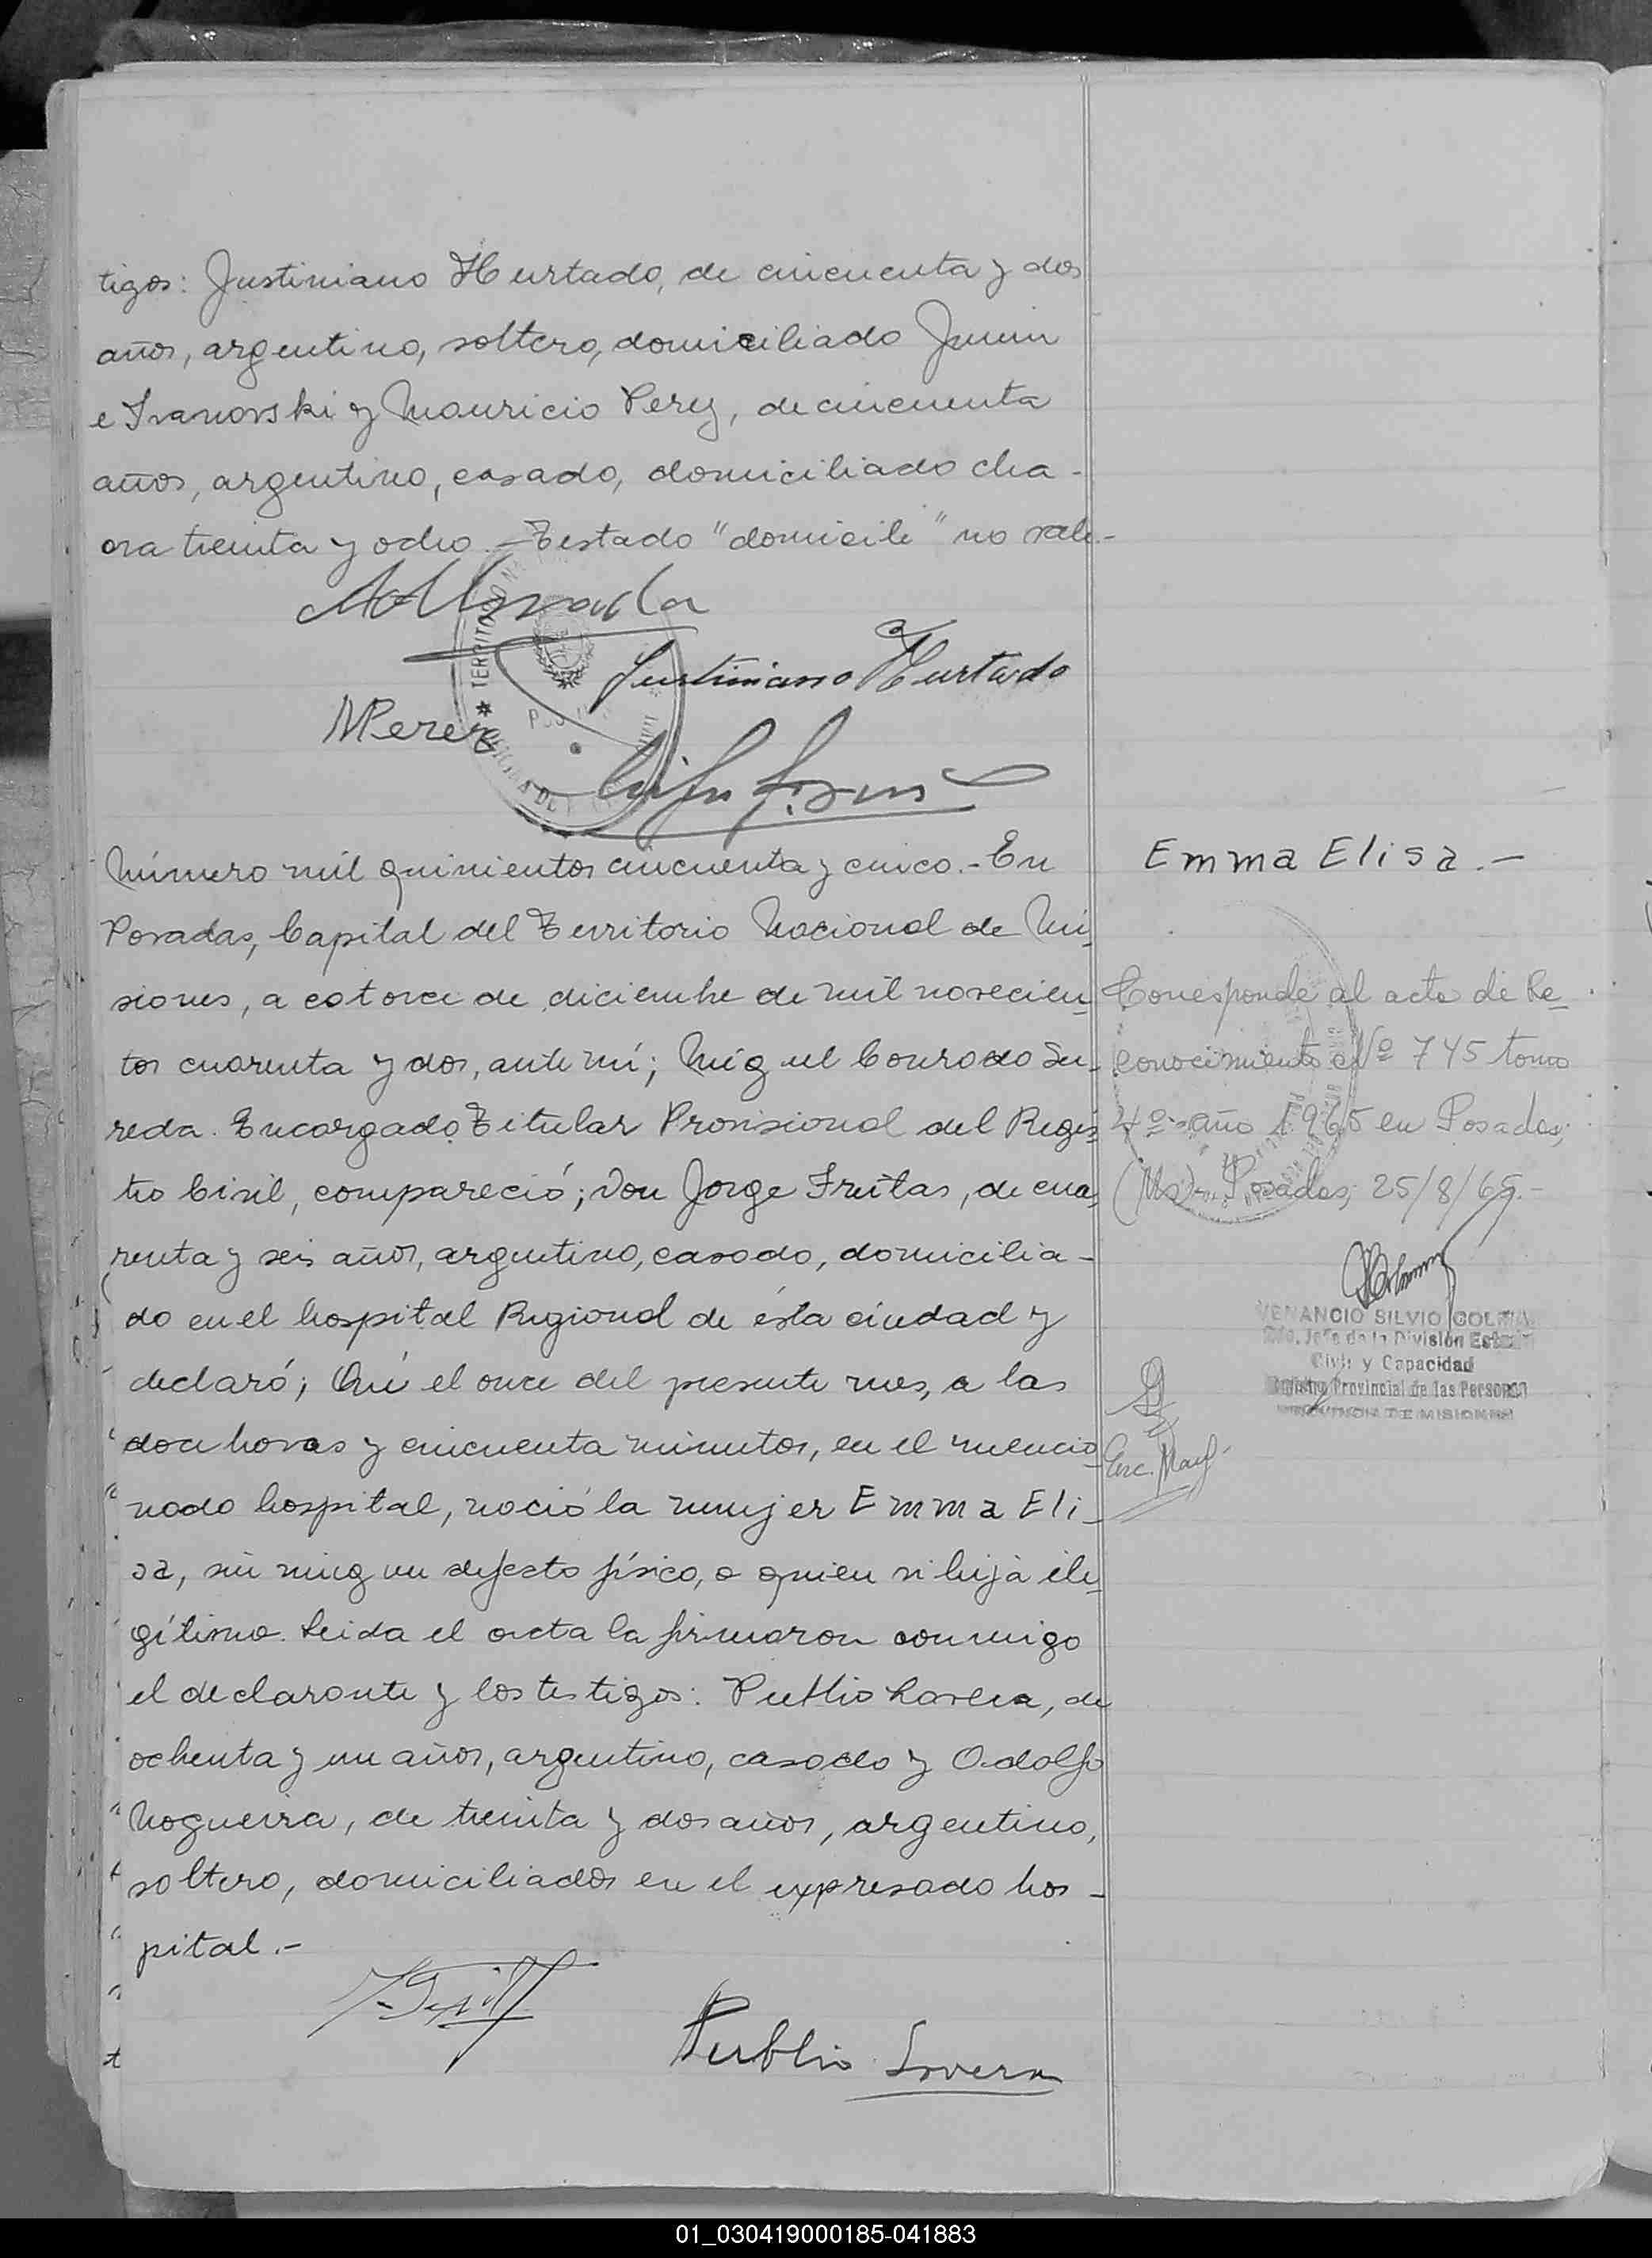 tigos: Justiniano Hurtado, de cincuenta y dos
años, argentino, soltero, domiciliado Junin
e Ivanovski y Mauricio Perez, de cincuenta
años, argentino, casado, domiciliado cha-
cra treinta y ocho.-Testado "domicili" no vale.-
Justiniano Hurtado
MPerez
Número mil quinientos cincuenta y cinco.-En
Posadas, Capital del Territorio Nacional de Mi-
siones, a catorce de diciembre de mil novecien-
tos cuarenta y dos, ante mí; Miguel Conrado Su-
reda. Encargado Titular Provisional del Regis-
tro Civil, compareció; don Jorge Freitas, de cua-
renta y seis años, argentino, casado, domicilia-
do en el hospital Regional de ésta ciudad y
declaró; Que el once del presente mes, a las
doce horas y cincuenta minutos, en el mencio-
nado hospital, nació la mujer Emma Eli-
sa, sin ningun defecto físico, a quien vi hija ile-
gítima. Leida el acta la firmaron conmigo
el declarante y los testigos: Publio Lovera, de
ochenta y un años, argentino, casado y Adolfo
Nogueira, de treinta y dos años, argentino,
soltero, domiciliados en el expresado hos-
pital.-
Publio Lovera
Emma Elisa.-
Corresponde al acta de Re-
conocimiento Nº 745 tomo
4º- año 1965 en Posadas,
(Ms)- Posadas, 25/8/65.-
VENANCIO SILVIO
Jefe de la División
Civil y Capacidad
Registro Provincial de las Personas
PROVINCIA DE MISIONES
01_030419000185-041883